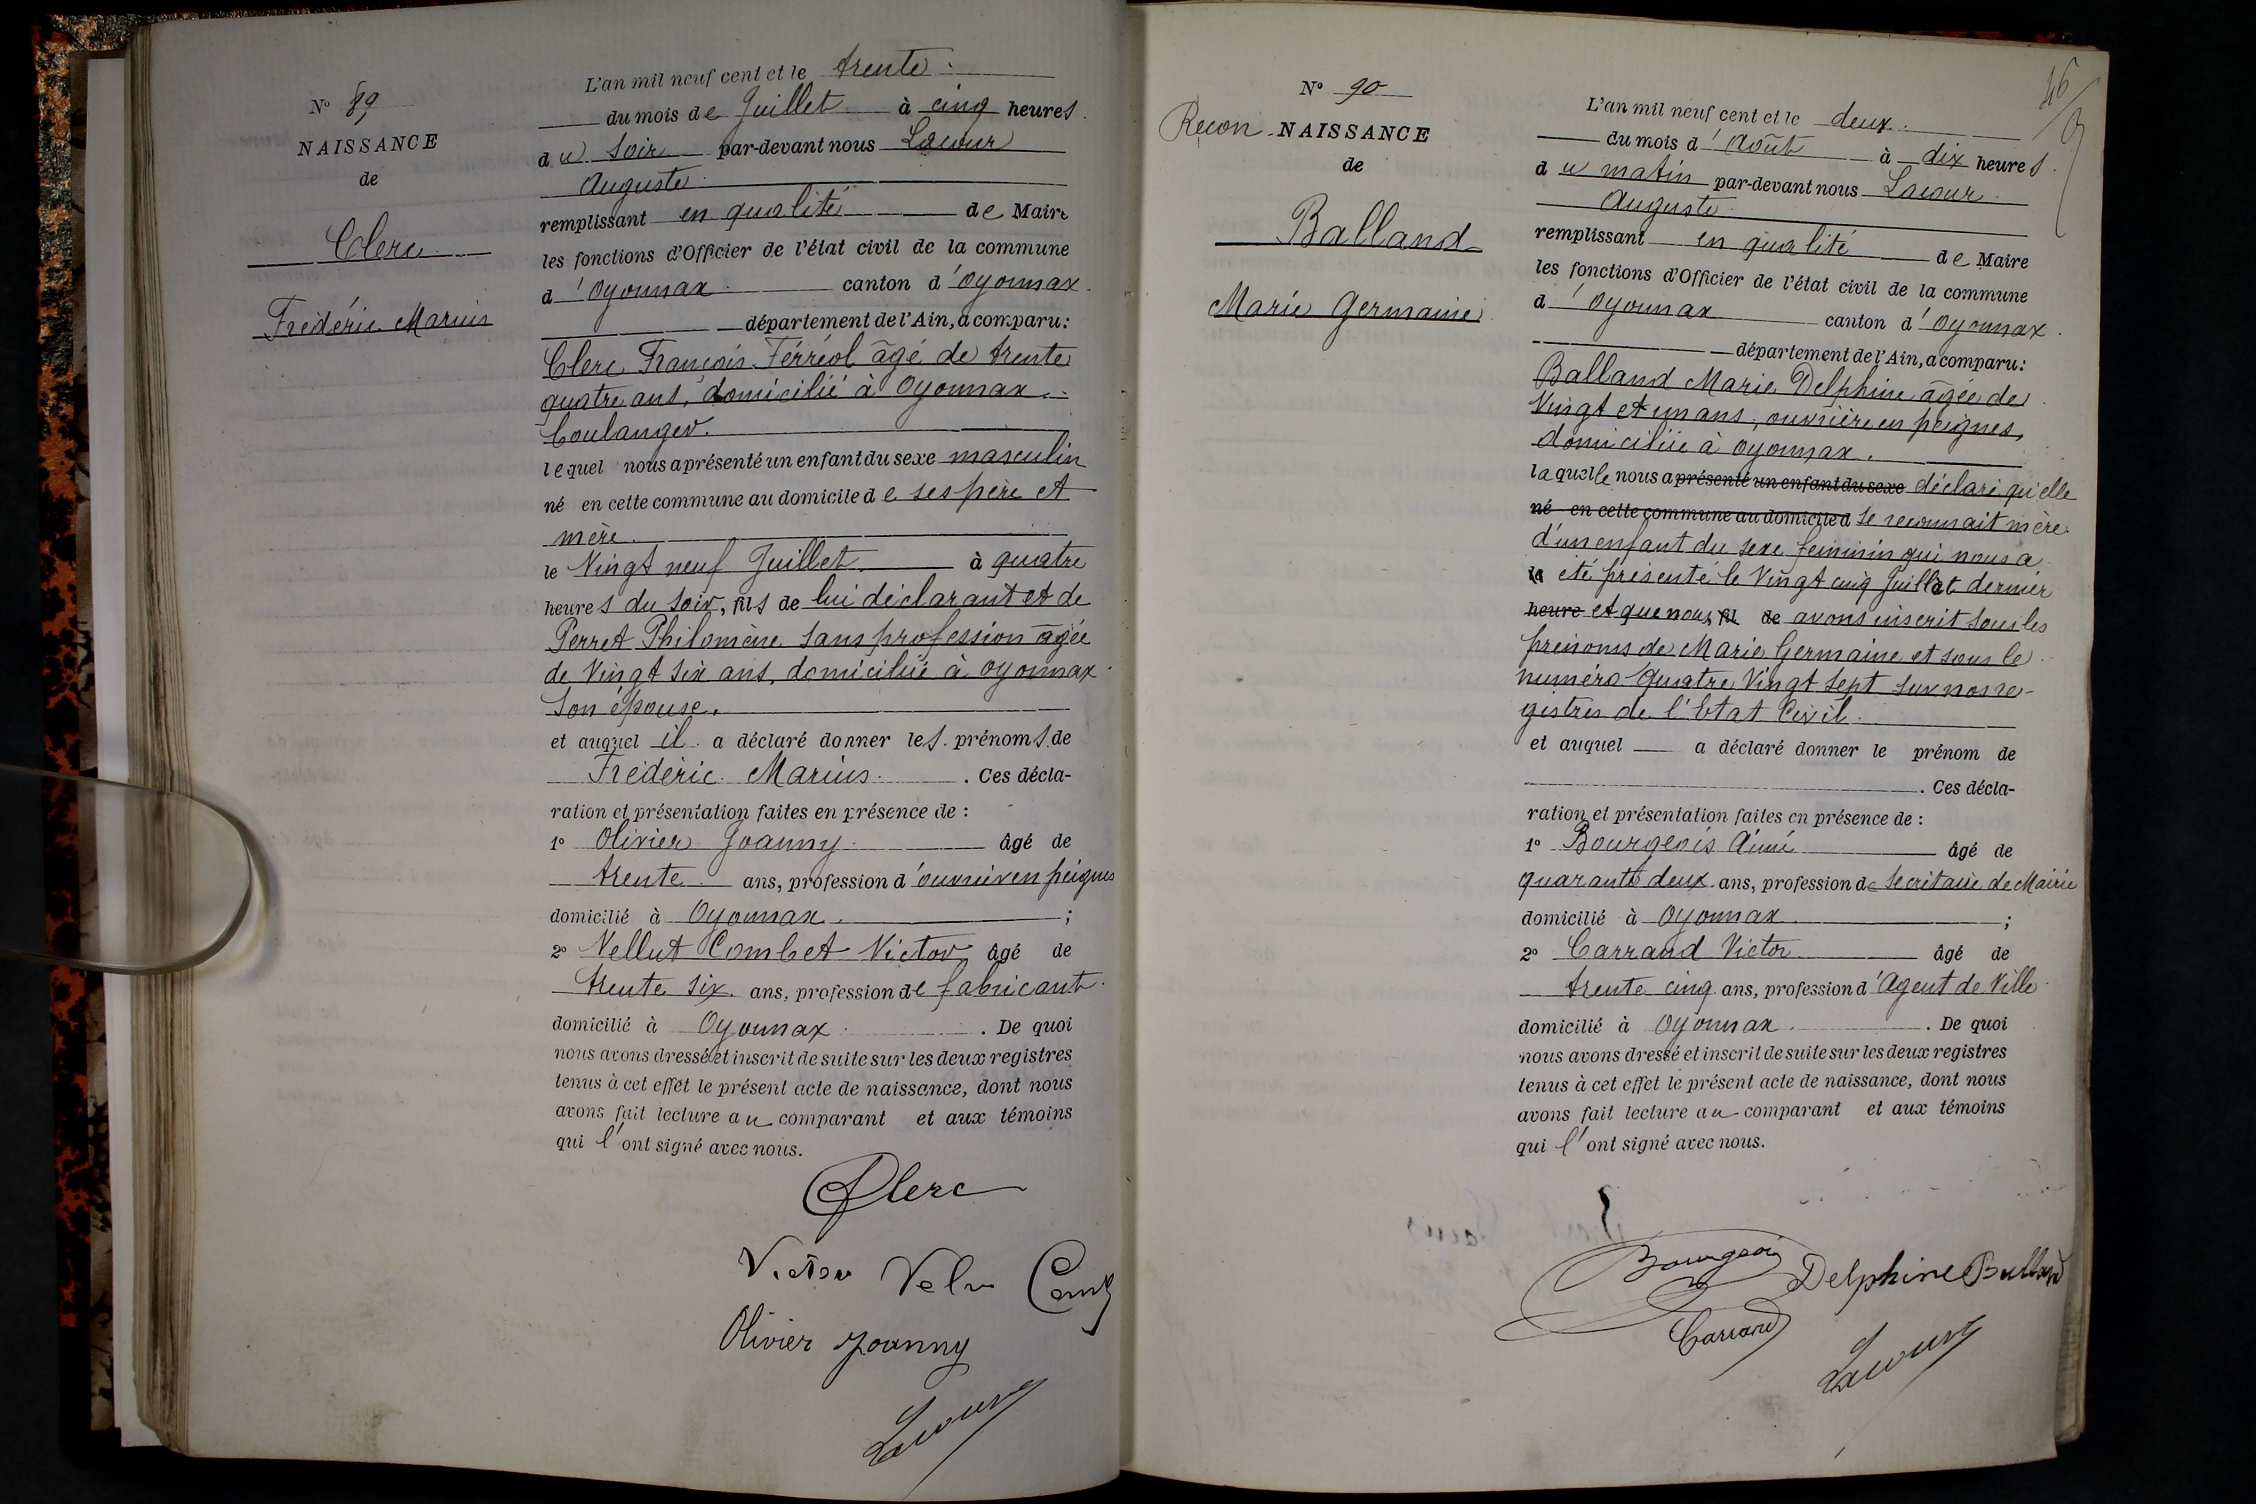 N° 89
NAISSANCE
de
Clerc
Frédéric Marius
L'an mil neuf cent et le trente
du mois de Juillet à cinq heures
du soir par-devant nous Lacour
Auguste
remplissant en qualité de Maire
les fonctions d'Officier de l'état civil de la commune
d'Oyonnax canton d'Oyonnax
département de l'Ain, a comparu:
Clerc François Ferréol âgé de trente
quatre ans, domicilié à Oyonnax
boulanger.
lequel nous a présenté un enfant du sexe masculin
né en cette commune au domicile de ses père et
mère.
le Vingt neuf Juillet à quatre
heures du soir, fils de lui déclarant et de
Perret Philomène sans profession âgée
de Vingt six ans, domiciliée à Oyonnax
son épouse.
et auquel il a déclaré donner les prénoms de
Frédéric Marius. Ces décla-
ration et présentation faites en présence de :
1° Olivier Joanny âgé de
trente ans, profession d'ouvrier en peignes
domicilié à Oyonnax ;
2° Vellut Combet Victor âgé de
trente six ans, profession de fabricant
domicilié à Oyonnax. De quoi
nous avons dressé et inscrit de suite sur les deux registres
tenus à cet effet le présent acte de naissance, dont nous
avons fait lecture au comparant et aux témoins
qui l'ont signé avec nous.
Clerc
Victor Velu Comb
Olivier Joanny
Lacour
46
N° 90
Recon. NAISSANCE
de
Balland
Marie Germaine
L'an mil neuf cent et le deux
du mois d'Août à dix heures
du matin par-devant nous Lacour
Auguste
remplissant en qualité de Maire
les fonctions d'Officier de l'état civil de la commune
d'Oyonnax canton d'Oyonnax.
département de l'Ain, a comparu:
Balland Marie Delphine âgée de
Vingt et un ans, ouvrière en peignes,
domiciliée à Oyonnax.
laquelle nous a présenté un enfant du sexe déclaré qu'elle
né en cette commune au domicile d se reconnait mère
d'un enfant du sexe feminin qui nous a
le eté présenté le Vingt cinq Juillet dernier
heure et que nous fil de avons inscrit sous les
prénoms de Marie Germaine et sous le
numéro Quatre Vingt Sept sur nos re-
gistres de l'Etat Civil.
et auquel a déclaré donner le prénom de
. Ces décla-
ration et présentation faites en présence de :
1° Bourgeois Aimé âgé de
quarante deux ans, profession de Secrétaire de Mairie
domicilié à Oyonnax ;
2° Carraud Victor âgé de
trente cinq ans, profession d'Agent de Ville
domicilié à Oyonnax. De quoi
nous avons dressé et inscrit de suite sur les deux registres
tenus à cet effet le présent acte de naissance, dont nous
avons fait lecture au comparant et aux témoins
qui l'ont signé avec nous.
Bourgeois Delphine Balland
Carraud
Lacour